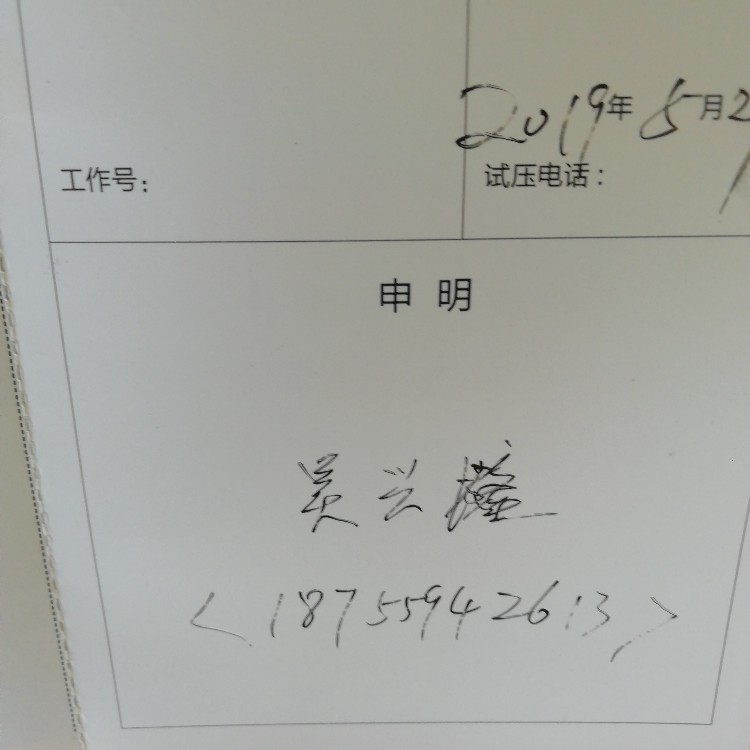 2019年5月2
工作号：
试压电话：
申明
吴兴
<18755942613>